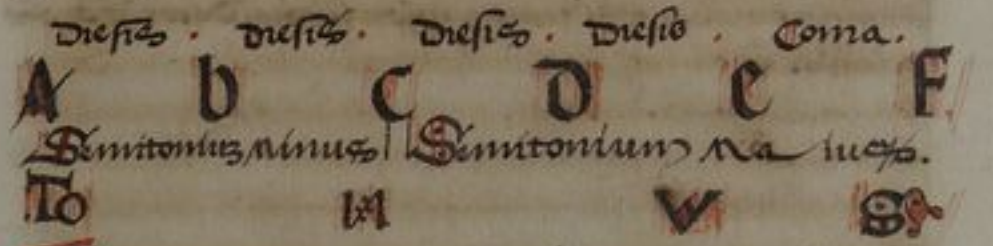 Diesis. diesis. diesis. diesis. Coma.
A b C D E F
Semitoniuz minus Semitonium Maius.
To N V S